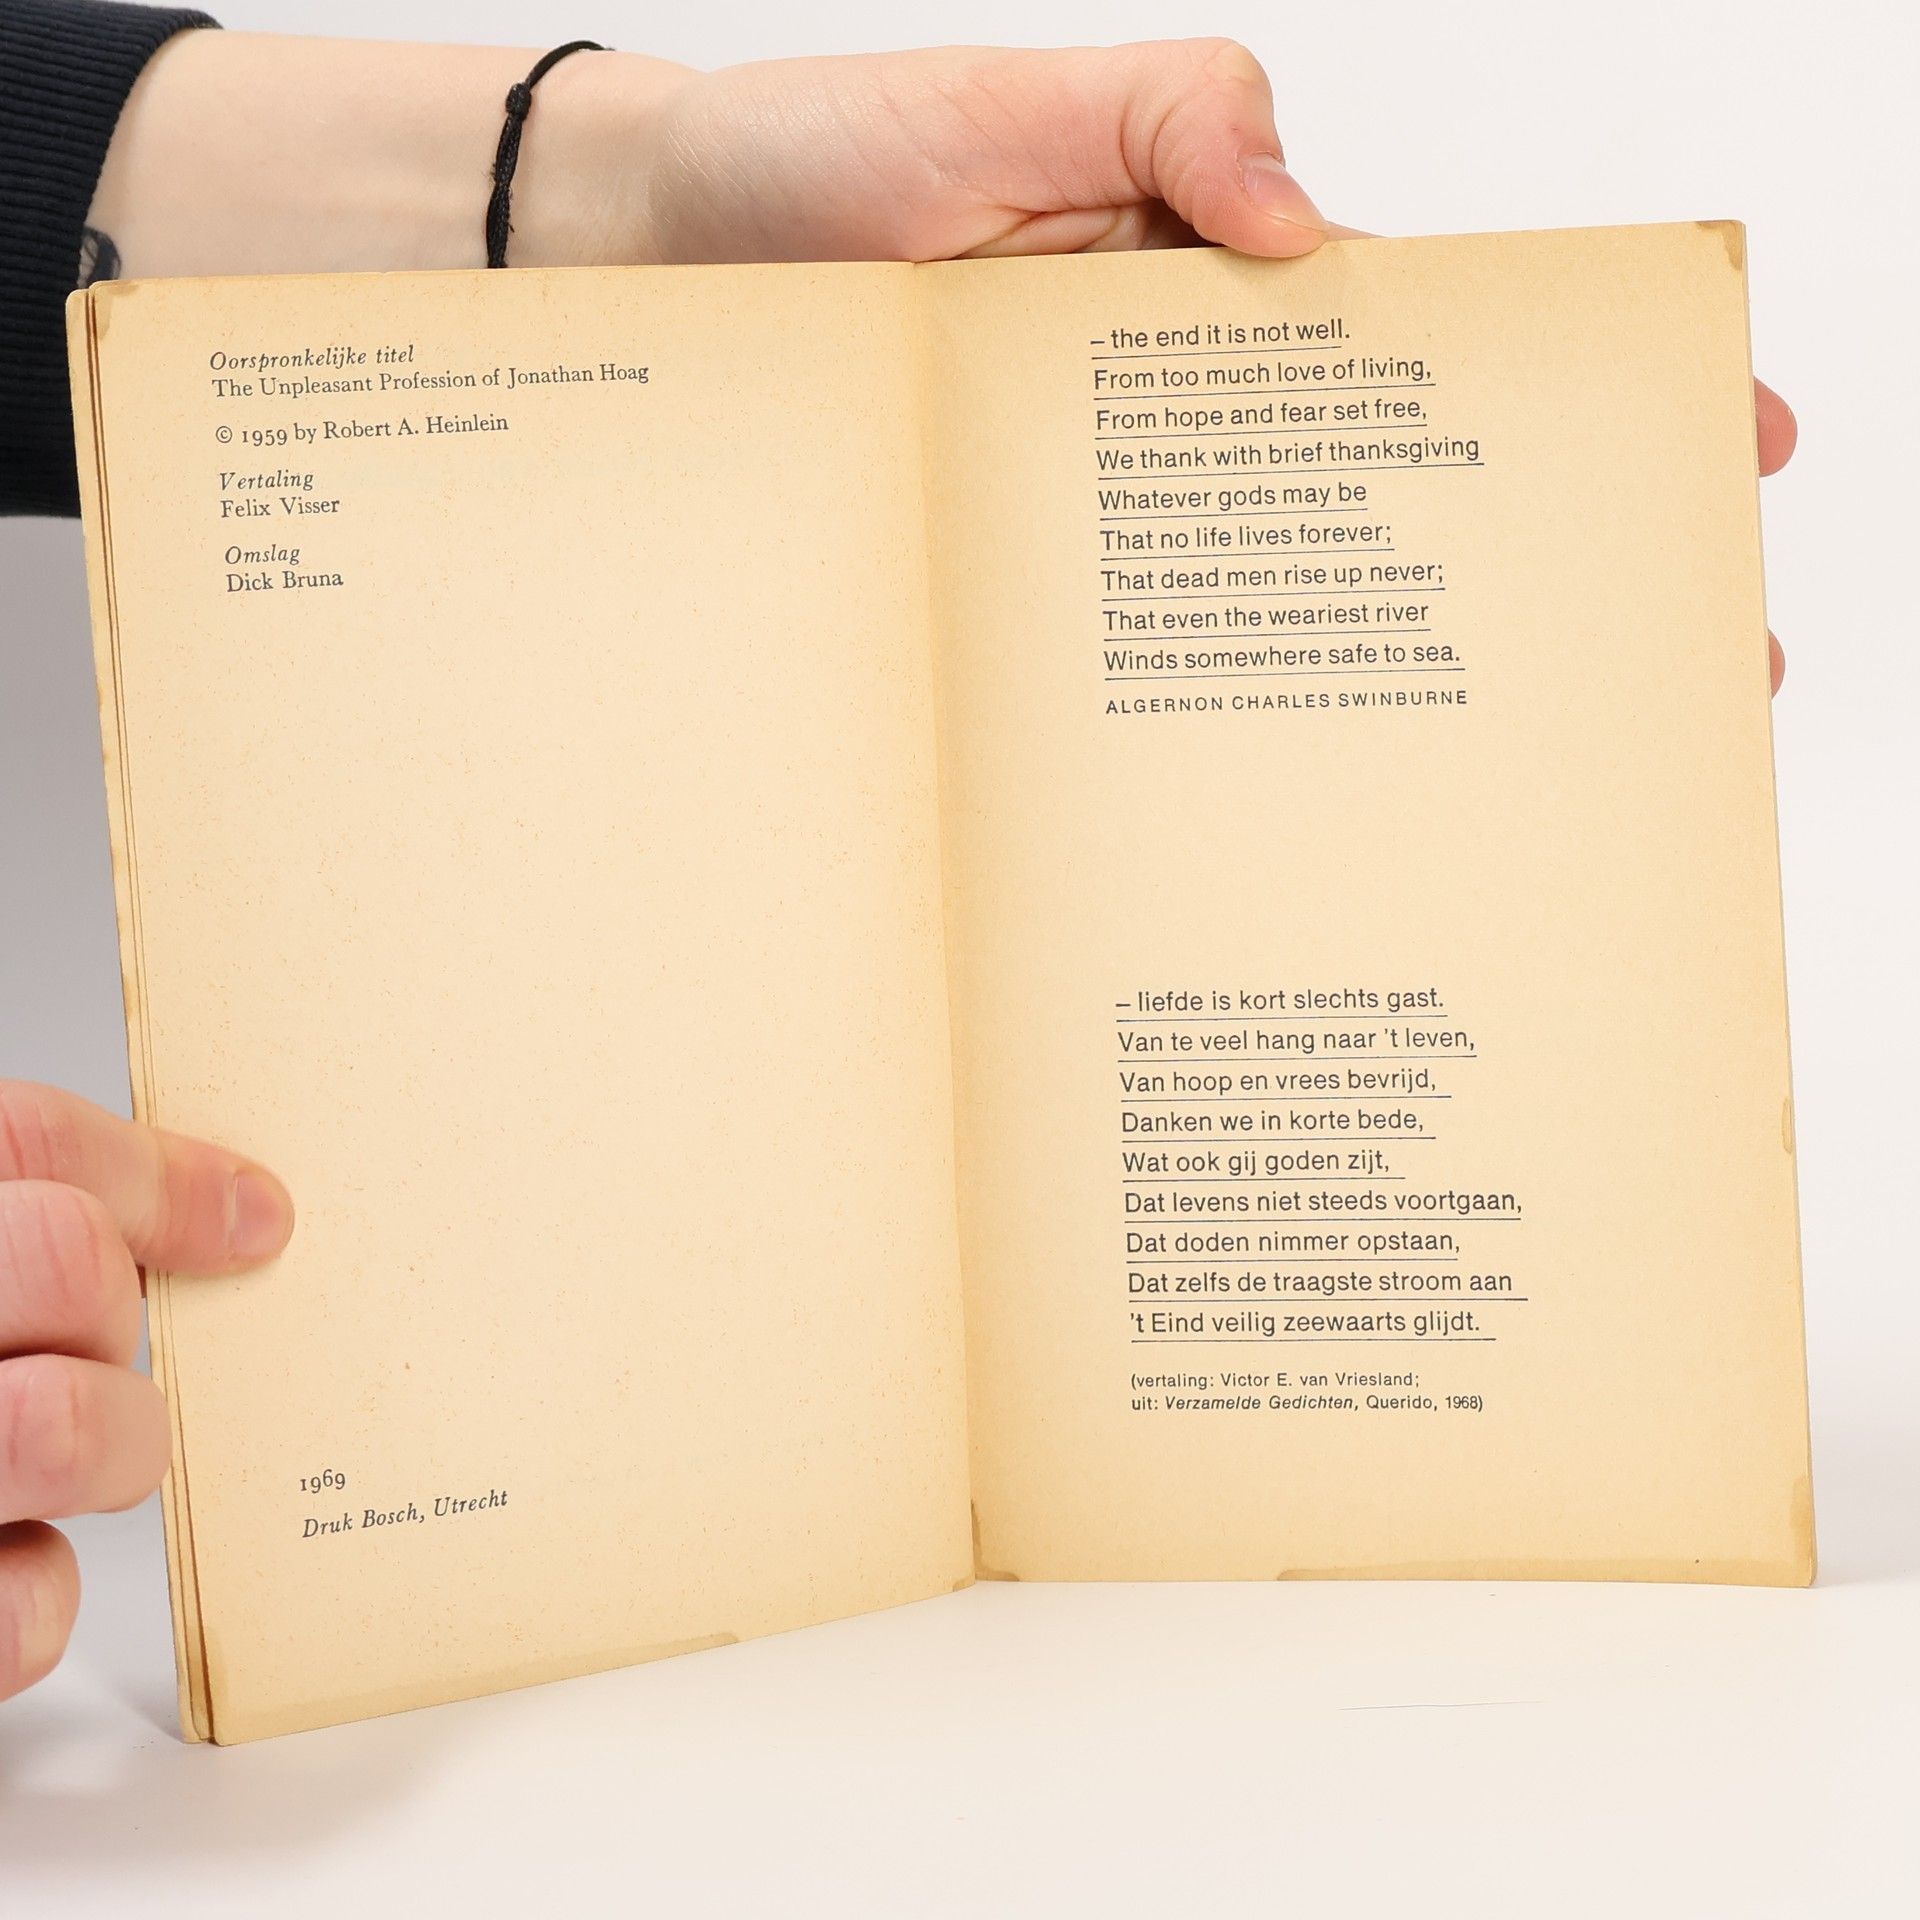 Oorspronkelijke titel
The Unpleasant Profession of Jonathan Hoag
© 1959 by Robert A. Heinlein
Vertaling
Felix Visser
Omslag
Dick Bruna
1969
Druk Bosch, Utrecht
– the end it is not well.
From too much love of living,
From hope and fear set free,
We thank with brief thanksgiving
Whatever gods may be
That no life lives forever;
That dead men rise up never;
That even the weariest river
Winds somewhere safe to sea.
ALGERNON CHARLES SWINBURNE
– liefde is kort slechts gast.
Van te veel hang naar 't leven,
Van hoop en vrees bevrijd,
Danken we in korte bede,
Wat ook gij goden zijt,
Dat levens niet steeds voortgaan,
Dat doden nimmer opstaan,
Dat zelfs de traagste stroom aan
't Eind veilig zeewaarts glijdt.
(vertaling: Victor E. van Vriesland;
uit: Verzamelde Gedichten, Querido, 1968)